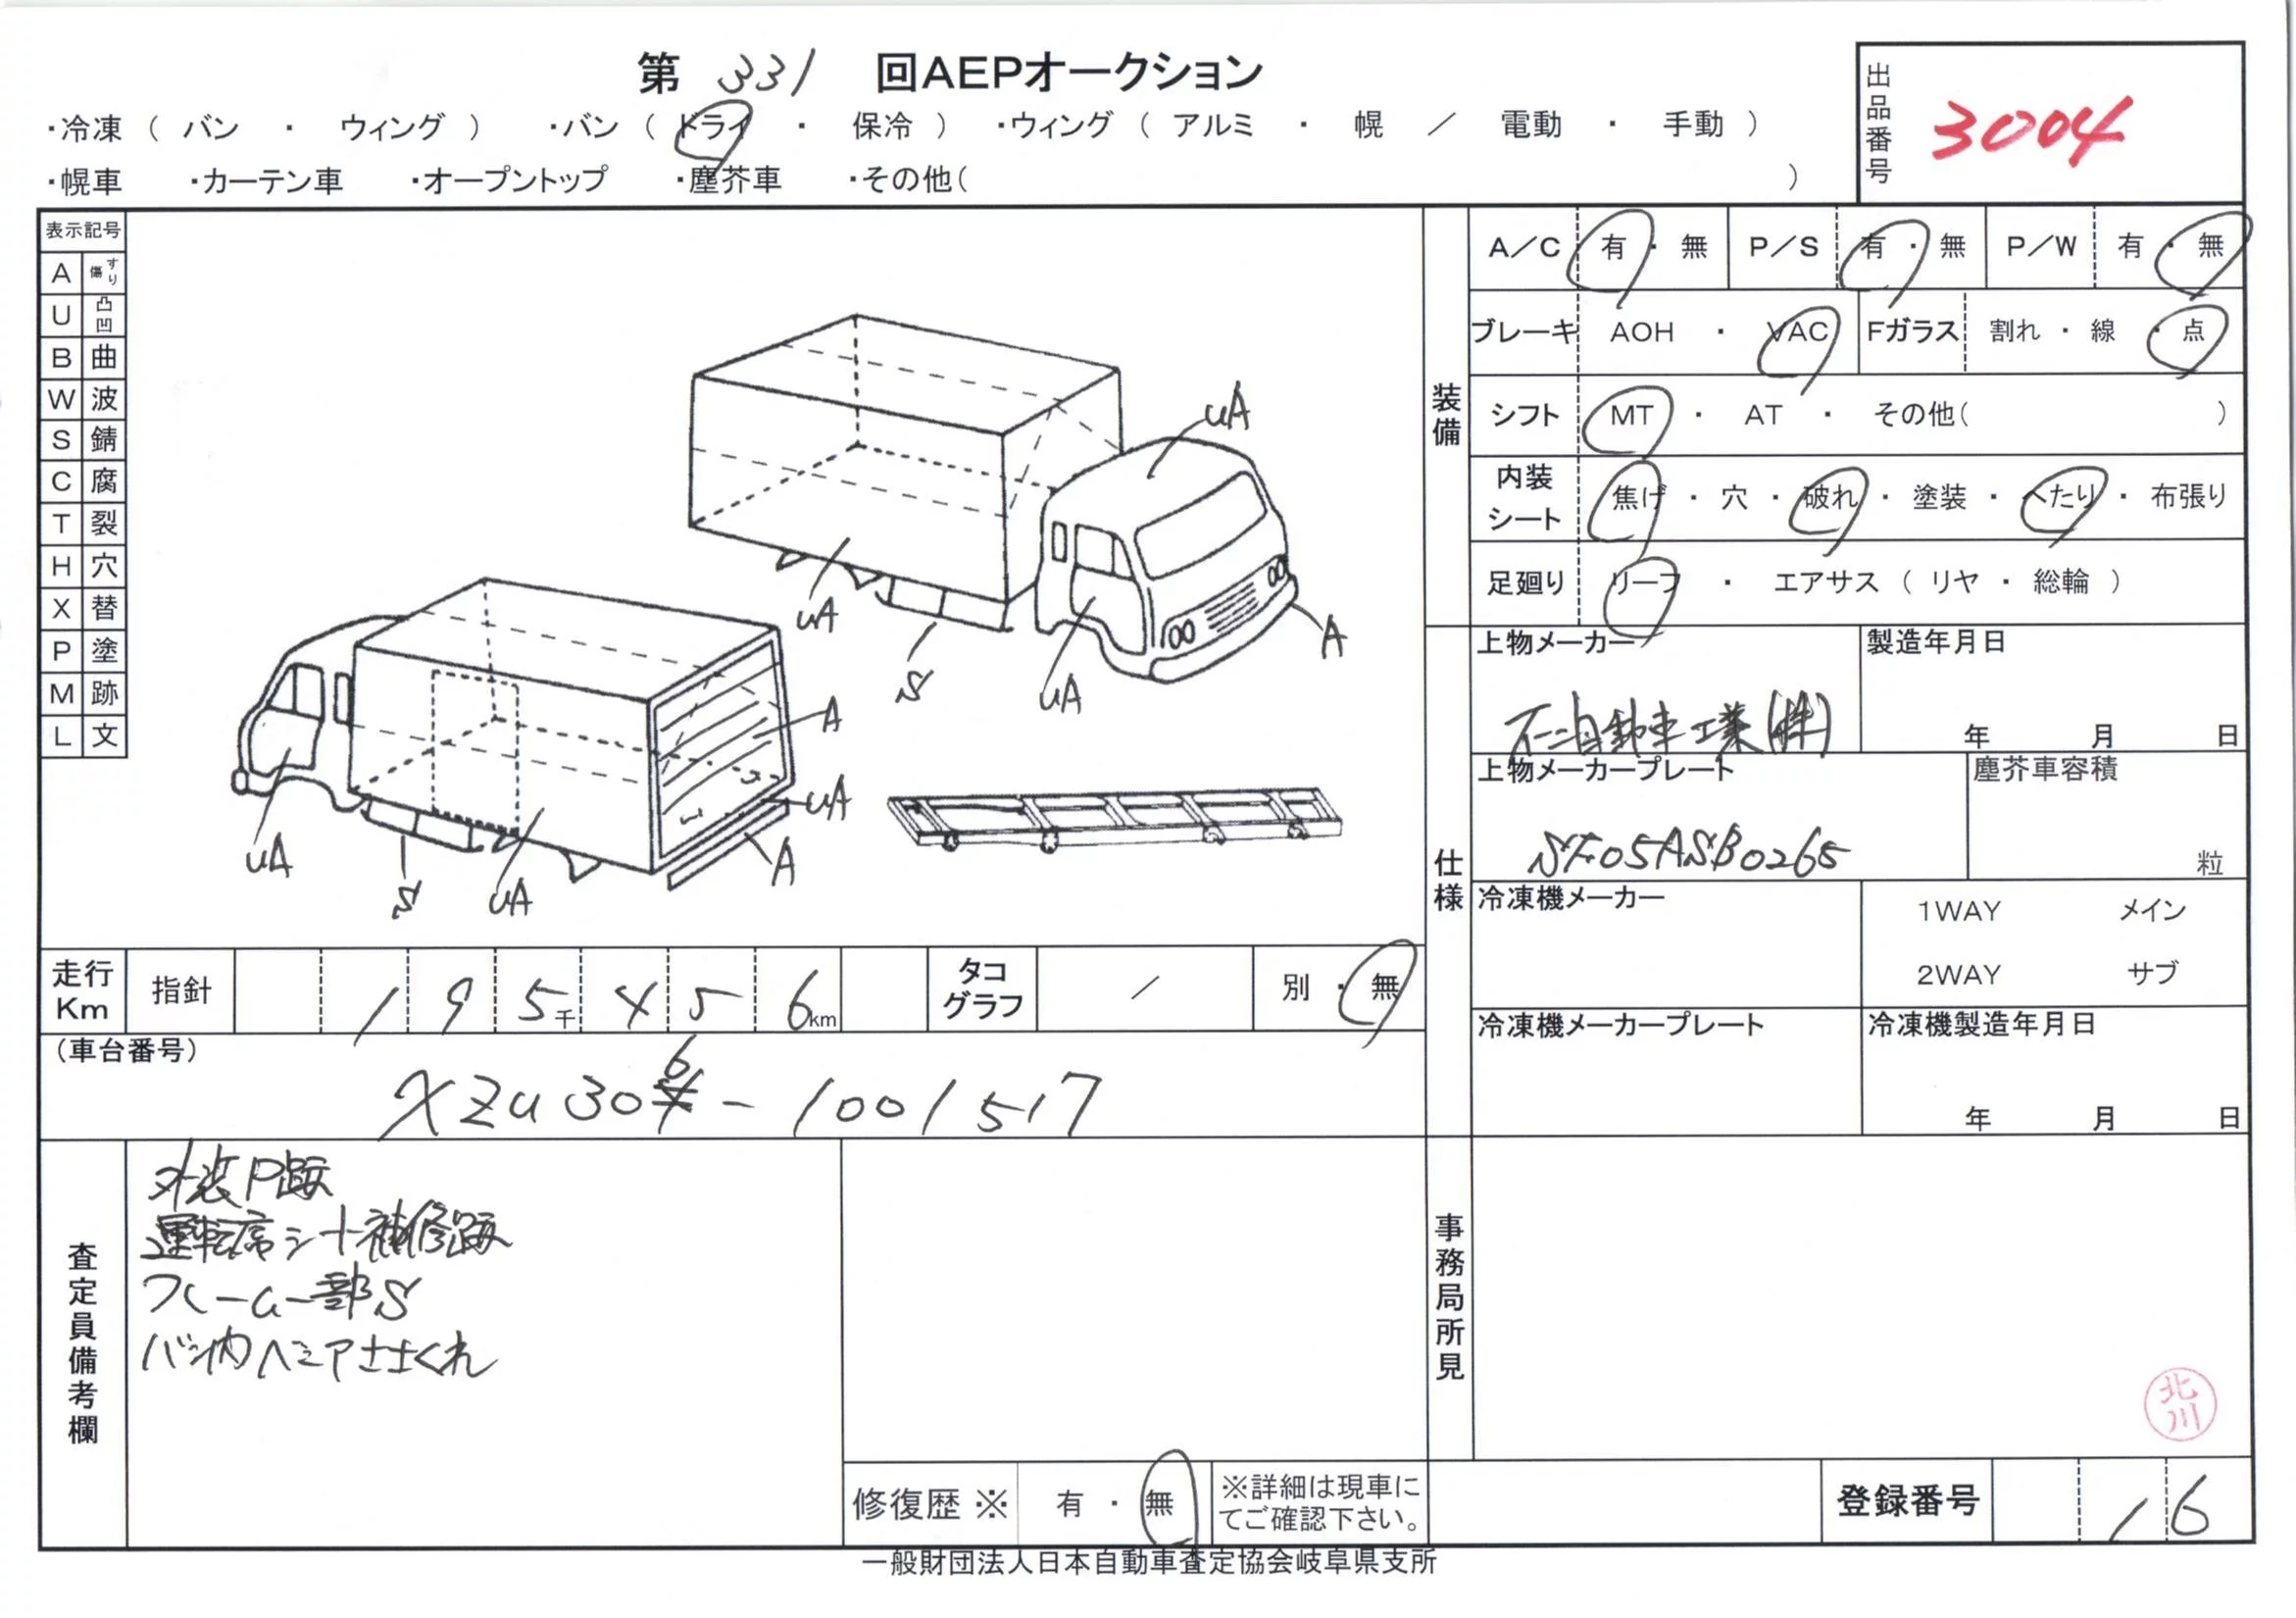 第 331 回AEPオークション
・冷凍 （ バン ・ ウィング ） ・バン （ ドライ ・ 保冷 ） ・ウィング （ アルミ ・ 幌 ／ 電動 ・ 手動 ）
・幌車 ・カーテン車 ・オープントップ ・塵芥車 ・その他（ ）
出品番号 3004
表示記号
A すり傷
U 凸凹
B 曲
W 波
S 錆
C 腐
T 裂
H 穴
X 替
P 塗
M 跡
L 文
uA
uA
S
uA
A
uA
S
uA
A
uA
A
装備
A／C 有 ・ 無 P／S 有 ・ 無 P／W 有 ・ 無
ブレーキ AOH ・ VAC Fガラス 割れ ・ 線 ・ 点
シフト MT ・ AT ・ その他（ ）
内装シート 焦げ ・ 穴 ・ 破れ ・ 塗装 ・ へたり ・ 布張り
足廻り リーフ ・ エアサス （ リヤ ・ 総輪 ）
仕様
上物メーカー 製造年月日
自動車工業(株) 年 月 日
上物メーカープレート 塵芥車容積
SF05ASB0265 粒
冷凍機メーカー 1WAY メイン
2WAY サブ
冷凍機メーカープレート 冷凍機製造年月日
年 月 日
走行Km 指針 1 9 5千 4 5 6km タコグラフ ／ 別 ・ 無
（車台番号）
XZU306-1001517
査定員備考欄
外装P跡
運転席シート補修跡
フレーム一部S
バン内ベニアささくれ
修復歴 ※ 有 ・ 無 ※詳細は現車にてご確認下さい。
事務局所見
北川
登録番号 16
一般財団法人日本自動車査定協会岐阜県支所